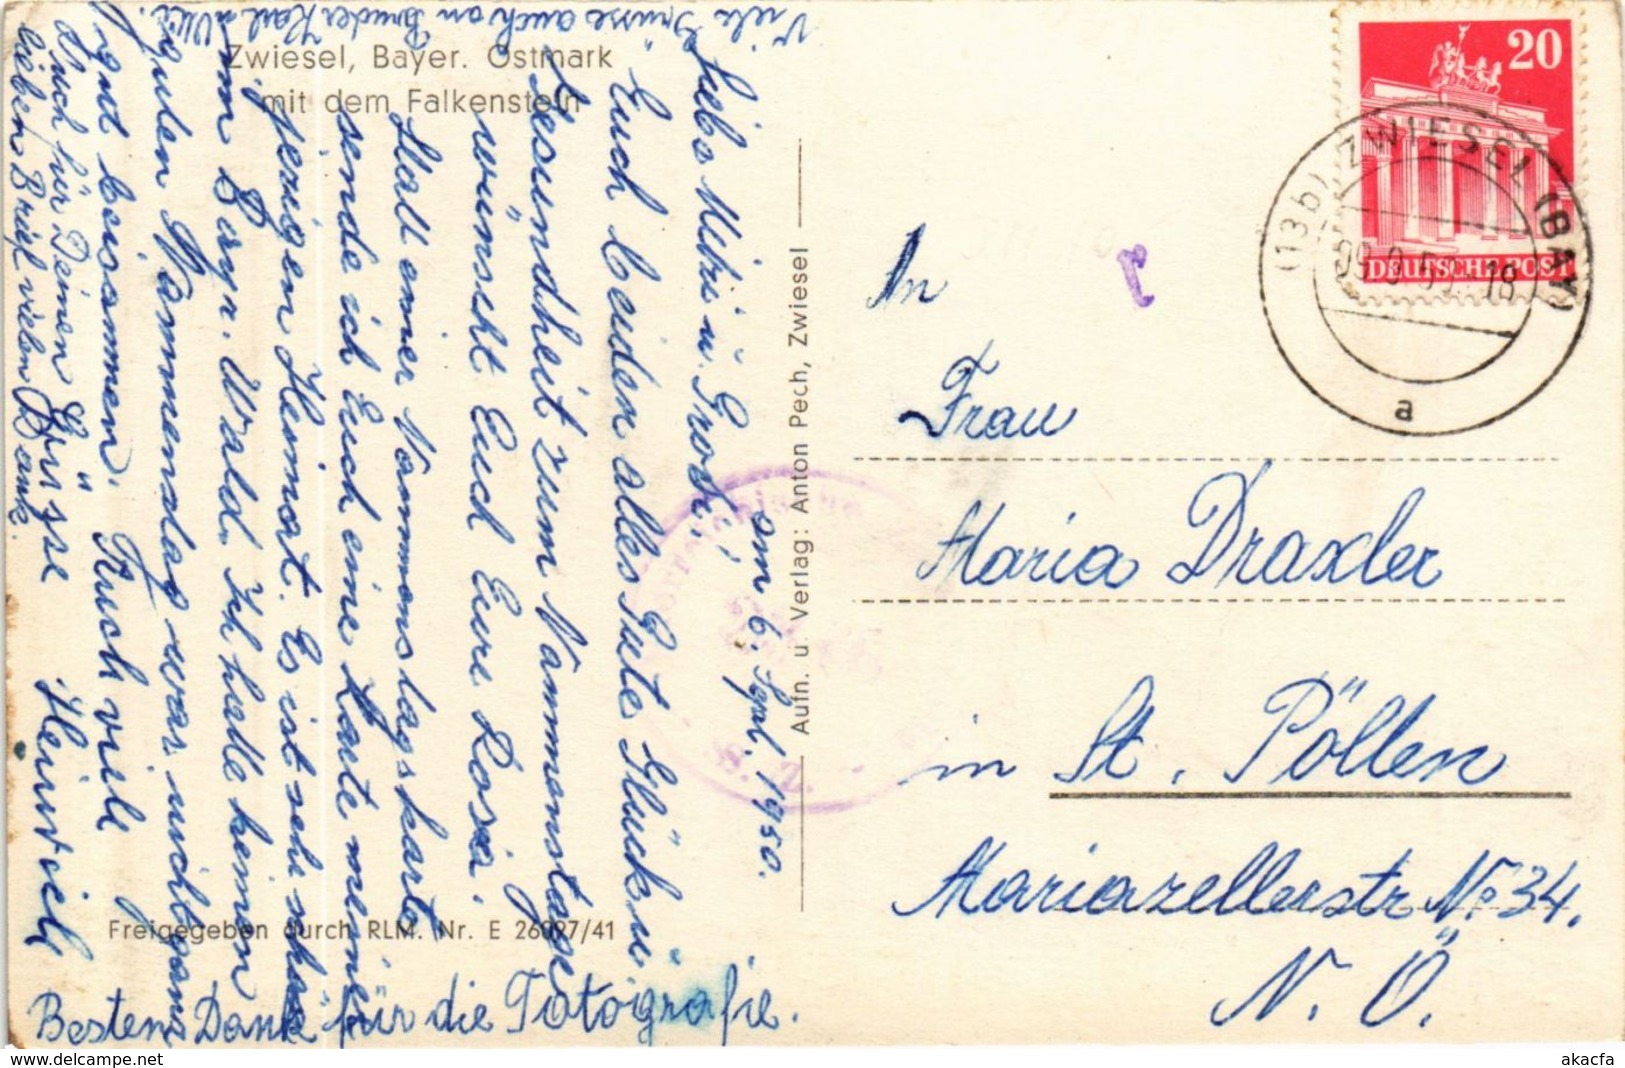 Viele Grüsse auch an Bruder Karl u.
Zwiesel, Bayer. Ostmark
mit dem Falkenstein
am 6. Sept. 1950.
Liebe Mitzi u. Groß.!
Euch beiden alles Gute Glück u.
Gesundheit zum Nammenstage
wünscht Euch Eure Rosa.
Statt einer Nammenstagskarte
sende ich Euch eine Karte meiner
jezigen Heimat. Es ist sehr schön
im Bayr. Wald. Ich hatte keinen
guten Nammenstag war nicht ganz
gut beisammen. Auch viele
Grüsse Heinrich
Auch für Deinen
lieben Brief vielen Dank.
Besten Dank für die Fotografie.
Freigegeben durch RLM. Nr. E 26097/41
Aufn. u. Verlag: Anton Pech, Zwiesel
20
DEUTSCHE POST
(13b) ZWIESEL (BAY)
a
An
Frau
Maria Draxler
in St. Pöllen
Mariazellerstr No 34.
N. Ö.
delcampe.net
akacfa